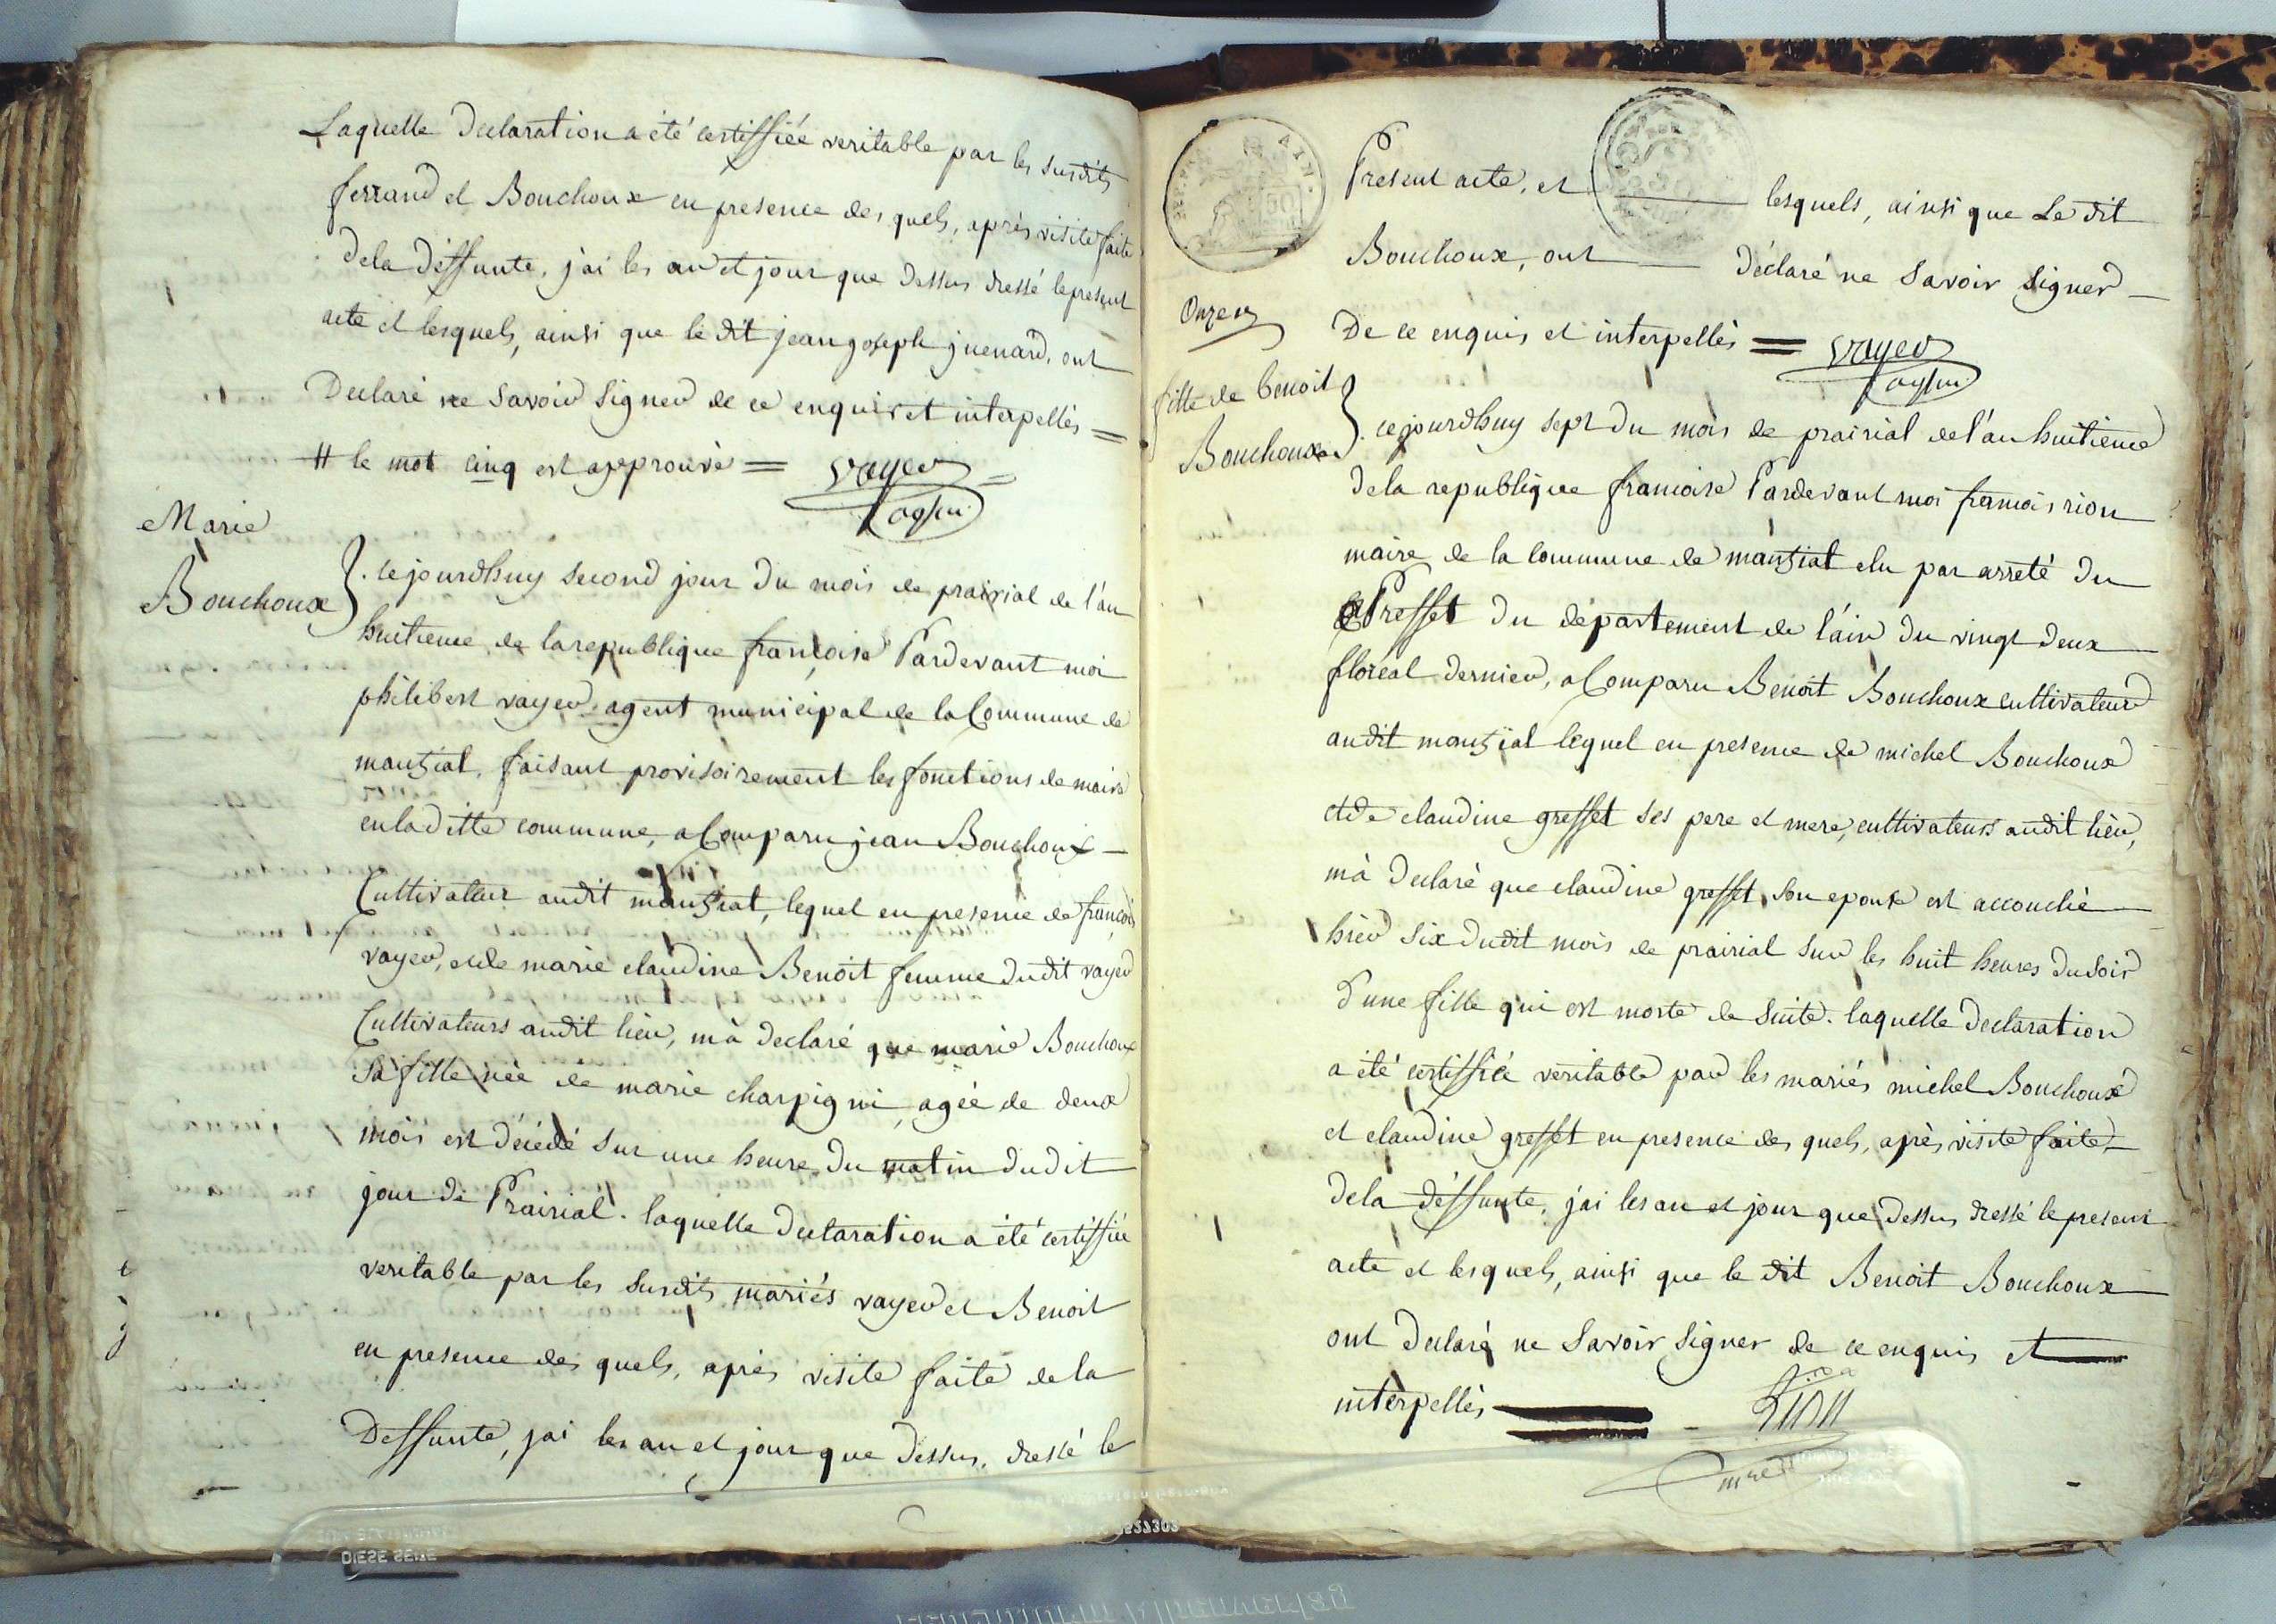 Laquelle Declaration a été certiffiée veritable par les susdits
ferrand et Bouchoux en presence des quels, après visite faite
dela déffunte, j'ai les an et jour que dessus dressé le present
acte et lesquels, ainsi que le dit jean joseph guenard, ont
Declaré ne savoir signer de ce enquis et interpellés =
# le mot cinq est approuvé = vayer
agent
Marie
Bouchoux
cejourdhuy second jour du mois de prairial de l'an
huitieme de la republique françoise Pardevant moi
philibert vayer agent municipal de la Commune de
mantziat, faisant provisoirement les fonctions de maire
en laditte commune, a Comparu jean Bouchoux
Cultivateur audit mantziat, lequel en presence de françois
vayer, et de marie claudine Benoit femme dudit vayer
Cultivateurs audit lieu, m'a declaré que marie Bouchoux
sa fille née de marie charpigni, agée de deux
mois est décédé sur une heure du matin dudit
jour de Prairial. laquelle declaration a été certiffiée
veritable par les susdits mariés vayer et Benoit
en presence des quels, après visite faite de la
Deffunte, j'ai les an et jour que dessus, dressé le
AIN
50
Present acte, et lesquels, ainsi que Le dit
Bouchoux, ont déclaré ne savoir signer
De ce enquis et interpellés = vayer
agent
Onze
fille de benoit
Bouchoux
cejourdhuy sept du mois de prairial de l'an huitieme
dela republique françoise Pardevant moi françois rion
maire de la Commune de mantziat elu par arreté du
Presset du département de l'ain du vingt deux
floréal dernier, a Comparu Benoit Bouchoux cultivateur
audit mantziat lequel en presence de michel Bouchoux
et de claudine gresset ses pere et mere, cultivateurs audit lieu,
m'a declaré que claudine gresset son epouse est accouchée
hier six dudit mois de prairial sur les huit heures du soir
d'une fille qui est morte de suite. laquelle declaration
a été certiffiée veritable par les mariés michel Bouchoux
et claudine gresset en presence des quels, après visite faite
dela déffunte, j'ai les an et jour que dessus dressé le present
acte et lesquels, ainsi que le dit Benoit Bouchoux
ont declaré ne savoir signer de ce enquis et
interpellés
Rion
maire
DIESE SEITE